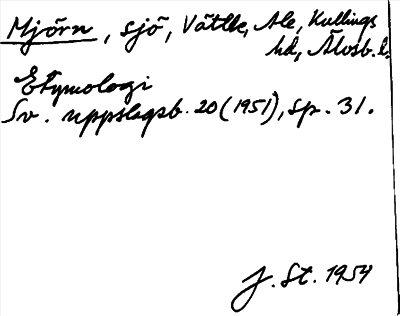 Mjörn, sjö, Vättle, Ale, Kullings
hd, Älvsb. l.
Etymologi
Sv. uppslagsb. 20 (1951), sp. 31.
J. St. 1954